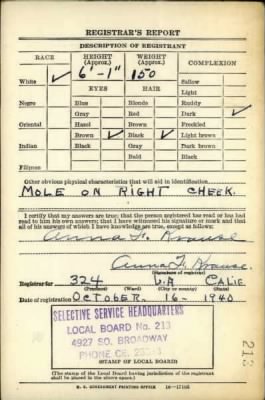 REGISTRAR'S REPORT
DESCRIPTION OF REGISTRANT
RACE HEIGHT (Approx.) WEIGHT (Approx.) COMPLEXION
White ✓ 6'-1" 150 Sallow
EYES HAIR Light
Negro Blue Blonde Ruddy
Gray Red Dark ✓
Oriental Hazel Brown Freckled
Brown ✓ Black ✓ Light brown
Indian Black Gray Dark brown
Bald Black
Filipino
Other obvious physical characteristics that will aid in identification
MOLE ON RIGHT CHEEK.
I certify that my answers are true; that the person registered has read or has had
read to him his own answers; that I have witnessed his signature or mark and that
all of his answers of which I have knowledge are true, except as follows:
Anna F. Krause
Anna F. Krause
(Signature of registrar)
Registrar for 324 L.A CALIF
(Precinct) (Ward) (City or county) (State)
Date of registration OCTOBER 16 - 1940
SELECTIVE SERVICE HEADQUARTERS
LOCAL BOARD No. 213
4927 SO. BROADWAY
PHONE CE.
(STAMP OF LOCAL BOARD)
(The stamp of the Local Board having jurisdiction of the registrant
shall be placed in the above space.)
U. S. GOVERNMENT PRINTING OFFICE 16-17105
213